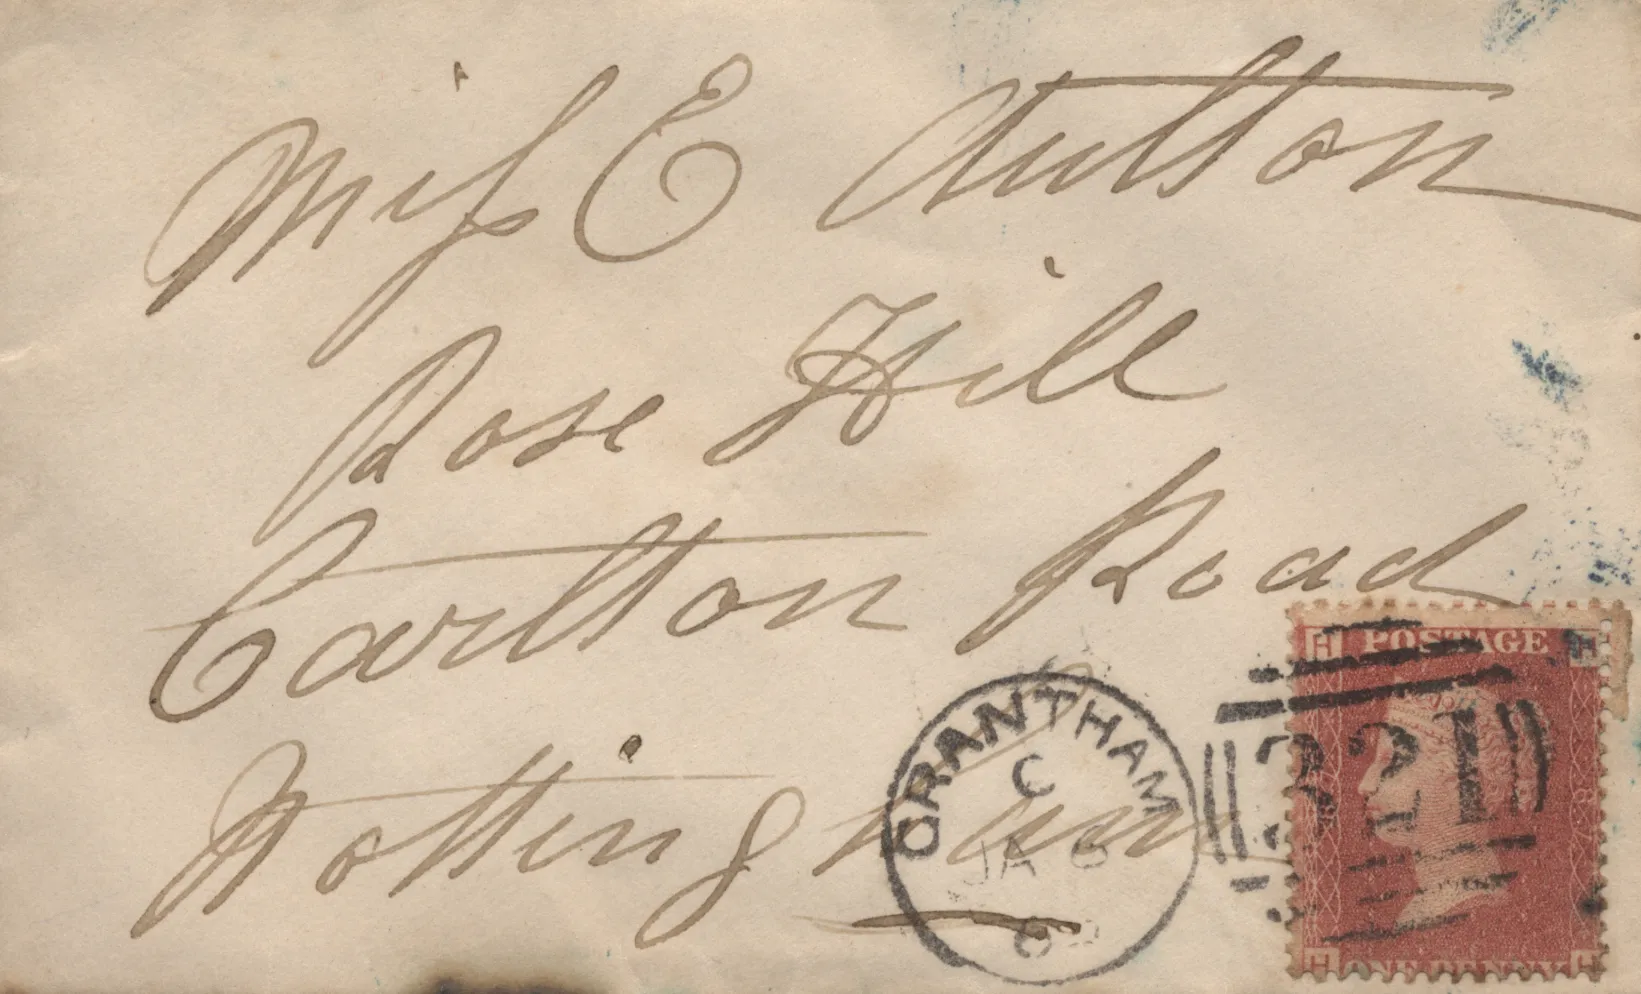 Miss E Aulton
Rose Hill
Carlton Road
Nottingham
GRANTHAM
C
JA 6
POSTAGE
H H
ONE PENNY